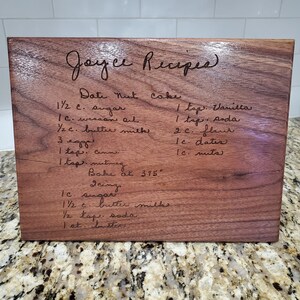 Joyce Recipes
Date Nut Cake
1½ c. sugar
1 c. wesson oil
½ c. butter milk
3 eggs
1 tsp.
1 tsp. nutmeg
1 tsp. vanilla
1 tsp. soda
2 c. flour
1 c. dates
1 c. nuts
Bake at 375°
Icing
1 c. sugar
1½ c. butter milk
½ tsp. soda
1 butter